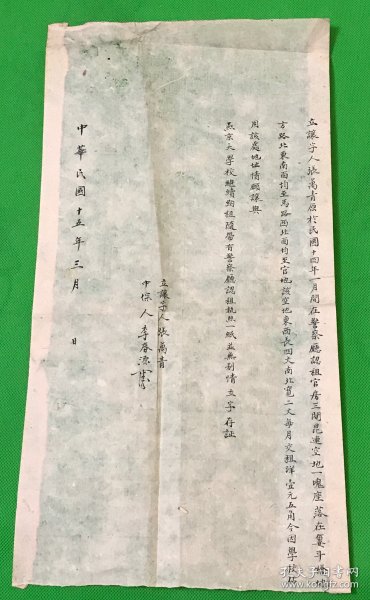 立讓字人張萬青原於民國十四年一月間在警察廳認租官房三間毘連空地一塊座落在簍斗橋
方路北東南兩均至馬路西北兩均至官地該空地東西長四丈南北寬二丈每月交租洋壹元五角今因學校
用該處地址情願讓與
燕京大學校繼續約租隨帶有警察廳認租執照一紙並無別情立字存証
立讓字人張萬青
中保人李春
中華民國十五年三月 日
孔夫子旧书网
www.kongfz.com